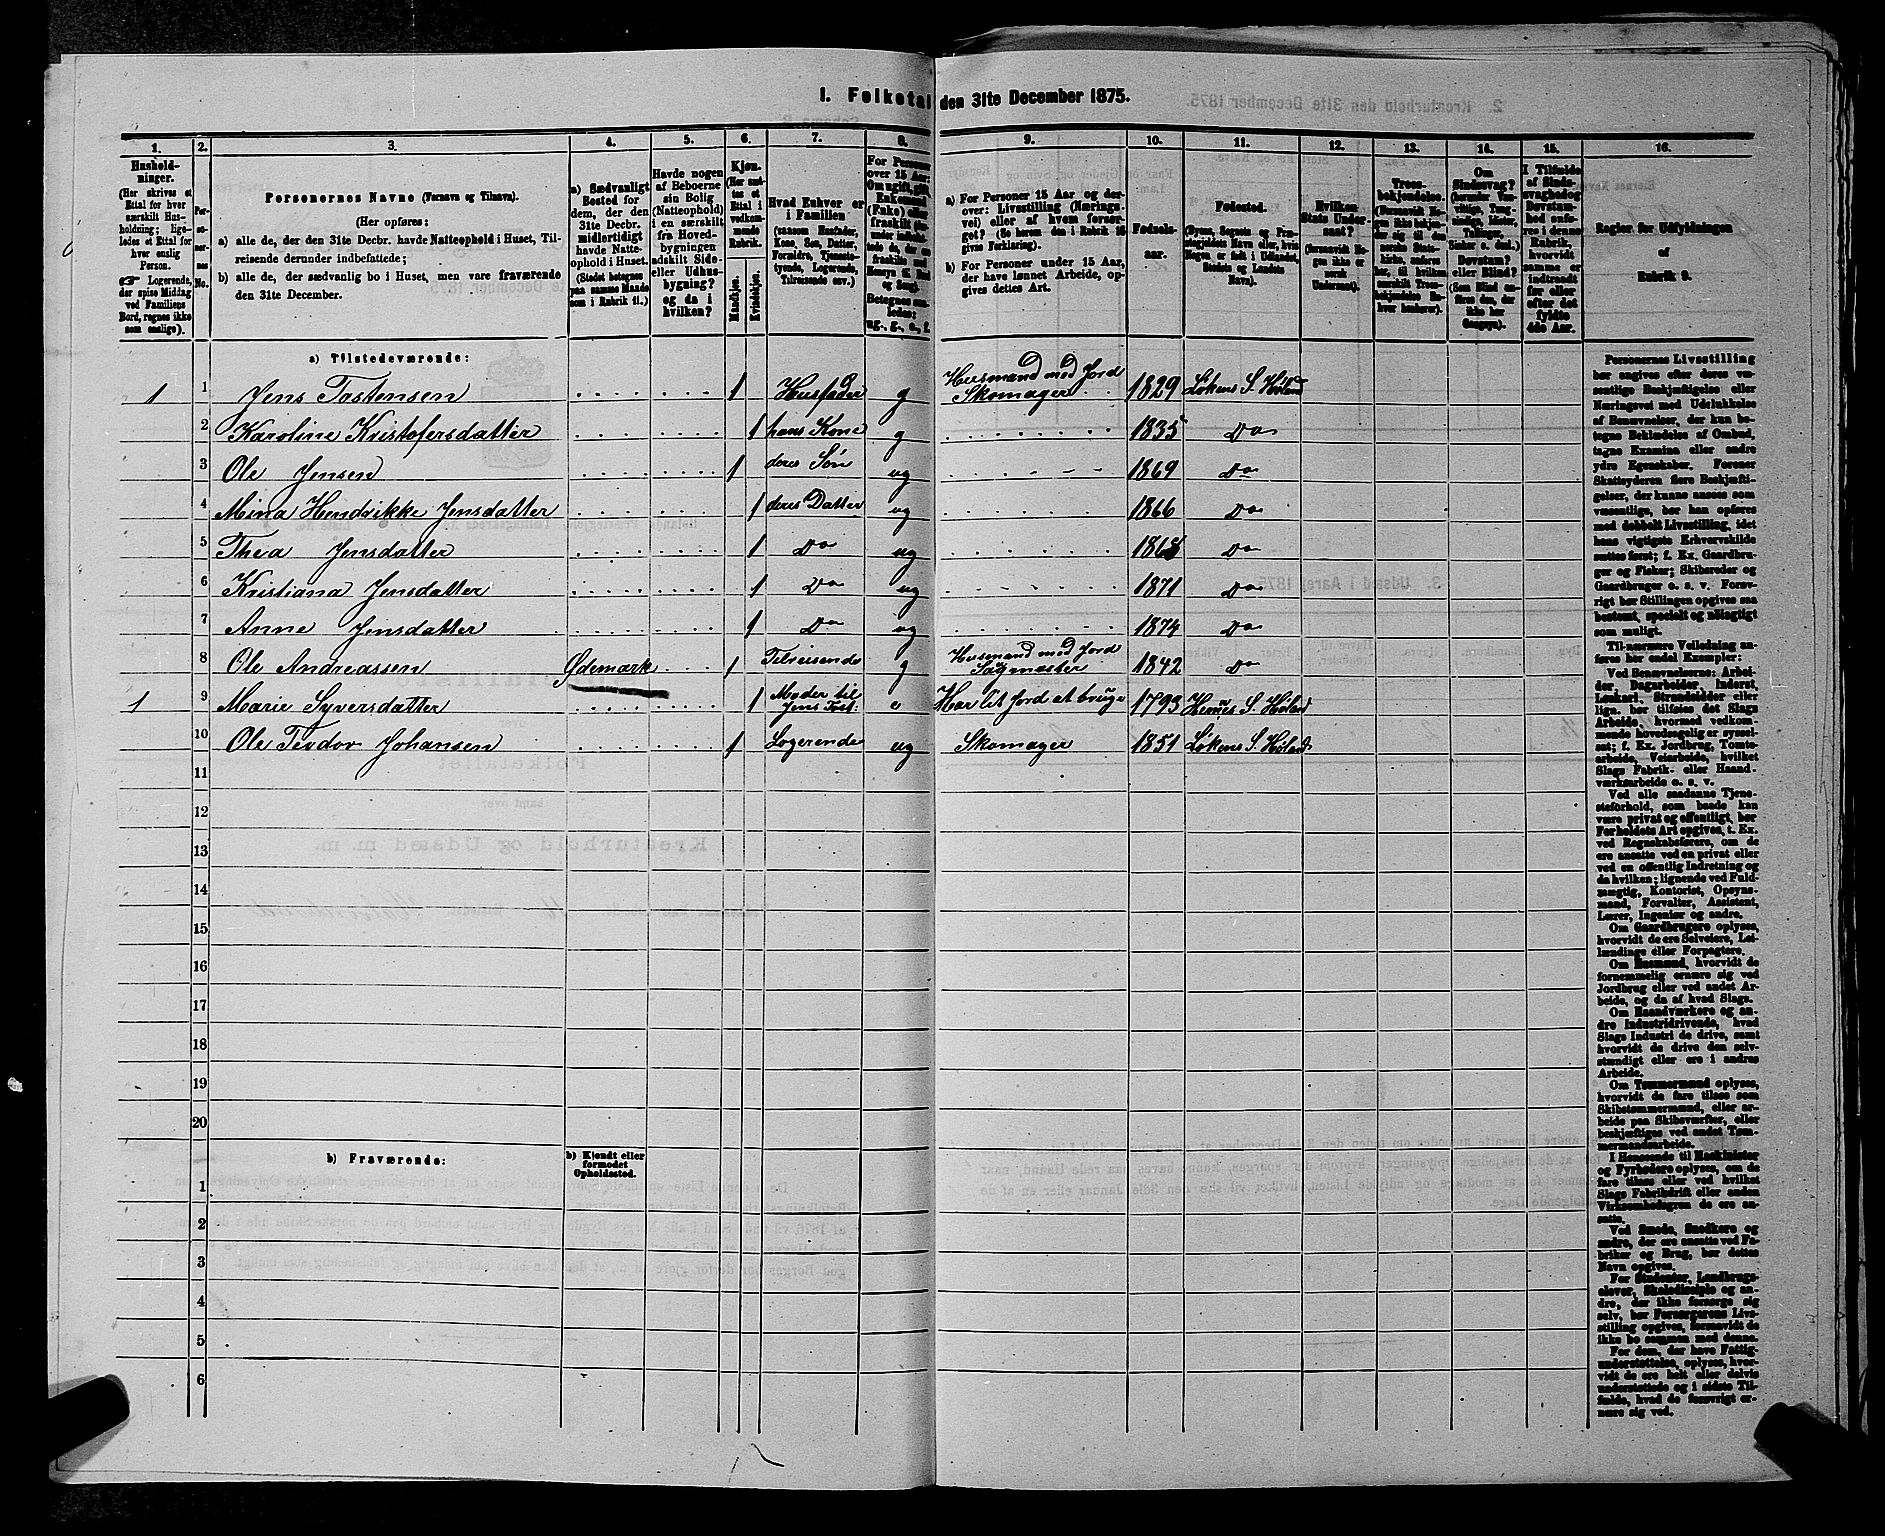 1. Folketal den 31te December 1875.
1. 2. 3. 4. 5. 6. 7. 8. 9. 10. 11. 12. 13. 14. 15. 16.
Hushold-
ninger.
(Her skrives et
Ettal for hver
særskilt Hus-
holdning; lige-
ledes et Ettal for
hver enslig
Person.
☞ Logerende,
der spise Middag
ved Familiens
Bord, regnes ikke
som enslige).
Per-
soner-
nes
No.
Personernes Navne (Fornavn og Tilnavn).
(Her opføres:
a) alle de, der den 31te Decbr. havde Natteophold i Huset, Til-
reisende derunder indbefattede;
b) alle de, der sædvanlig bo i Huset, men vare fraværende
den 31te December.
a) Sædvanligt
Bosted for
dem, der den
31te Decbr.
midlertidigt
havde Natte-
ophold i Huset.
(Stedet betegnes
paa samme Maade
som i Rubrik 11.)
Havde nogen
af Beboerne
sin Bolig
(Natteophold)
i en særskilt
fra Hoved-
bygningen
adskilt Side-
eller Udhus-
bygning?
og da i
hvilken?
Kjøn.
(Her sæt-
tes et
Ettal i
vedkom-
mende
Rubrik.
Mandkjøn.
Kvindekjøn.
Hvad Enhver er
i Familien
(saasom Husfader,
Kone, Søn, Datter,
Forældre, Tjeneste-
tyende, Logerende,
Tilreisende osv.)
For Personer
over 15 Aar:
Om ugift, gift,
Enkemand
(Enke) eller
fraskilt
Betegnes saa-
ledes:
ug., g., e., f.
a) For Personer 15 Aar og der-
over: Livsstilling (Nærings-
vei) eller af hvem forsør-
get? (Se herom den i Rubrik 16
givne Forklaring).
b) For Personer under 15 Aar,
der have lønnet Arbeide, op-
gives dettes Art.
Fødsels-
aar.
Fødested.
(Byens, Sognets og Præ-
stegjeldets Navn eller, hvis
Nogen er født i Udlandet,
Stedets og Landets
Navn).
Hvilken
Stats Under-
saat?
(forsaavidt No-
gen ikke er
norsk
Undersaat).
Troes-
bekjendelse.
(Forsaavidt No-
gen ikke bekjen-
der sig til den
norske Stats-
kirke, anføres
her, til hvilken
særskilt Troes-
bekjendelse No-
hver henhører).
Om
Sindssvag?
Døvstum?
eller Blind?
(Som Blind an-
føres den, der
ikke har
Gangsyn).
I Tilfælde
af Sinds-
svaghed og
Døvstum-
hed anfø-
res i denne
Rubrik,
hvorvidt
samme er
indtraadt
før eller
efter det
fyldte
4de Aar.
Regler for Udfyldningen
af
Rubrik 9.
a) Tilstedeværende:
1 1 Jens Tostensen 1 Husfader g Husmand med Jord Skomager 1829 Løkens S. Høland
2 Karoline Kristofersdatter 1 hans Kone g 1835 Do
3 Ole Jensen 1 deres Søn ug 1869 Do
4 Mina Hendrikke Jensdatter 1 deres Datter ug 1866 Do
5 Thea Jensdatter 1 Do ug Do
6 Kristiana Jensdatter 1 Do ug 1871 Do
7 Anne Jensdatter 1 Do ug 1874 Do
8 Ole Andreassen Ødemark 1 Tilreisende g Husmand med Jord Sagmester 1842 Do
1 9 Marie Syversdatter 1 Moder til Jens Tost: e Har lit Jord at bruge 1793 Hemes S. Høland
10 Ole Teodor Johansen 1 Logerende ug Skomager 1851 Løkens S. Høland
11
12
13
14
15
16
17
18
19
20
b) Fraværende:
b) Kjendt eller
formodet
Opholdssted.
1
2
3
4
5
6
Personernes Livsstilling
bør angives efter deres væ-
sentlige Beskjæftigelse eller
Næringsvei med Udelukkelse
af Benævnelser, der kun be-
tegne Beklædelse af Ombud,
tagne Examina eller andre
ydre Egenskaber. Forener
Skatteyderen flere Beskjæfti-
gelser, der kunne ansees som
væsentlige, bør han opføres
med dobbelt Livsstilling, idet
hans vigtigste Erhvervskilde
sættes først; f. Ex. Gaardbru-
ger og Fisker; Skibsreder og
Gaardbruger o. s. v. Forøv-
rigt bør Stillingen opgives saa
bestemt, specielt og nøiagtigt
som muligt.
Til nærmere Veiledning an-
føres her endel Exempler:
Ved Benævnelserne: Arbei-
der, Dagarbeider, Inderst,
Løskarl, Strandsidder eller
lign. bør tilføies det Slags
Arbeide, hvormed vedkom-
mende hovedsagelig er syssel-
sat; f. Ex. Jordbrug, Tomte-
arbeide, Veiarbeide, hvilket
Slags Fabrik- eller Haand-
værksarbeide o. s. v.
Ved alle saadanne Tjene-
steforhold, som baade kan
være privat og offentligt, bør
Forholdets Art opgives, t. Ex.
ved Regnskabsførere, om de
ere ansatte ved en privat eller
ved en offentlig Indretning og
da hvilken; lignende ved Fuld-
mægtig, Kontorist, Opsyns-
mand, Forvalter, Assistent,
Lærer, Ingeniør og andre.
Om Gaardbrugere oplyses,
hvorvidt de ere Selveiere, Lei-
lændinge eller Forpagtere.
Om Husmænd, hvorvidt de
fornemmelig ernære sig ved
Jordbrug eller ved andet Ar-
beide, og da af hvad Slags.
Om Haandværkere og an-
dre Industridrivende, hvad
Slags Industri de drive, samt
hvorvidt de drive den selv-
stændigt eller ere i andres
Arbeide.
Om Tømmermænd oplyses,
hvorvidt de fare tilsøs som
Skibstømmermænd, eller ar-
beide paa Skibsværfter, eller
beskjæftiges ved andet Tøm-
mermandsarbeide.
I Henseende til Maskinister
og Fyrbødere oplyses, om de
fare tilsøs eller ved hvilket
Slags Fabrikdrift eller anden
Virksomhedsgren de ere an-
satte.
Ved Smede, Snedkere og
andre, der ere ansatte ved Fa-
briker og Brug, bør dettes
Navn opgives.
For Studenter, Landbrugs-
elever, Skoledisciple og an-
dre, der ikke forsørge sig
selv, bør Forsørgerens Livs-
stilling opgives, forsaavidt de
ikke bo sammen med denne.
For dem, der have Fattig-
understøttelse, oplyses, hvor-
vidt de ere helt eller delvis
understøttede og i sidste Til-
fælde, hvad de forøvrigt er-
nære sig ved.